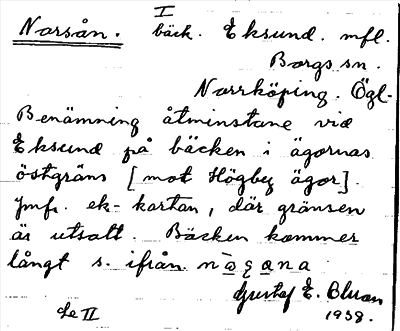 I
Norsån. bäck. Eksund. mfl.
Borgs sn.
Norrköping. Ögl.
Benämning åtminstone vid
Eksund på bäcken i ägornas
östgräns [mot Högby ägor].
Jmfr. ek-kartan, där gränsen
är utsatt. Bäcken kommer
långt s. ifrån.
Gustaf E. Bluan
1938.
Se II